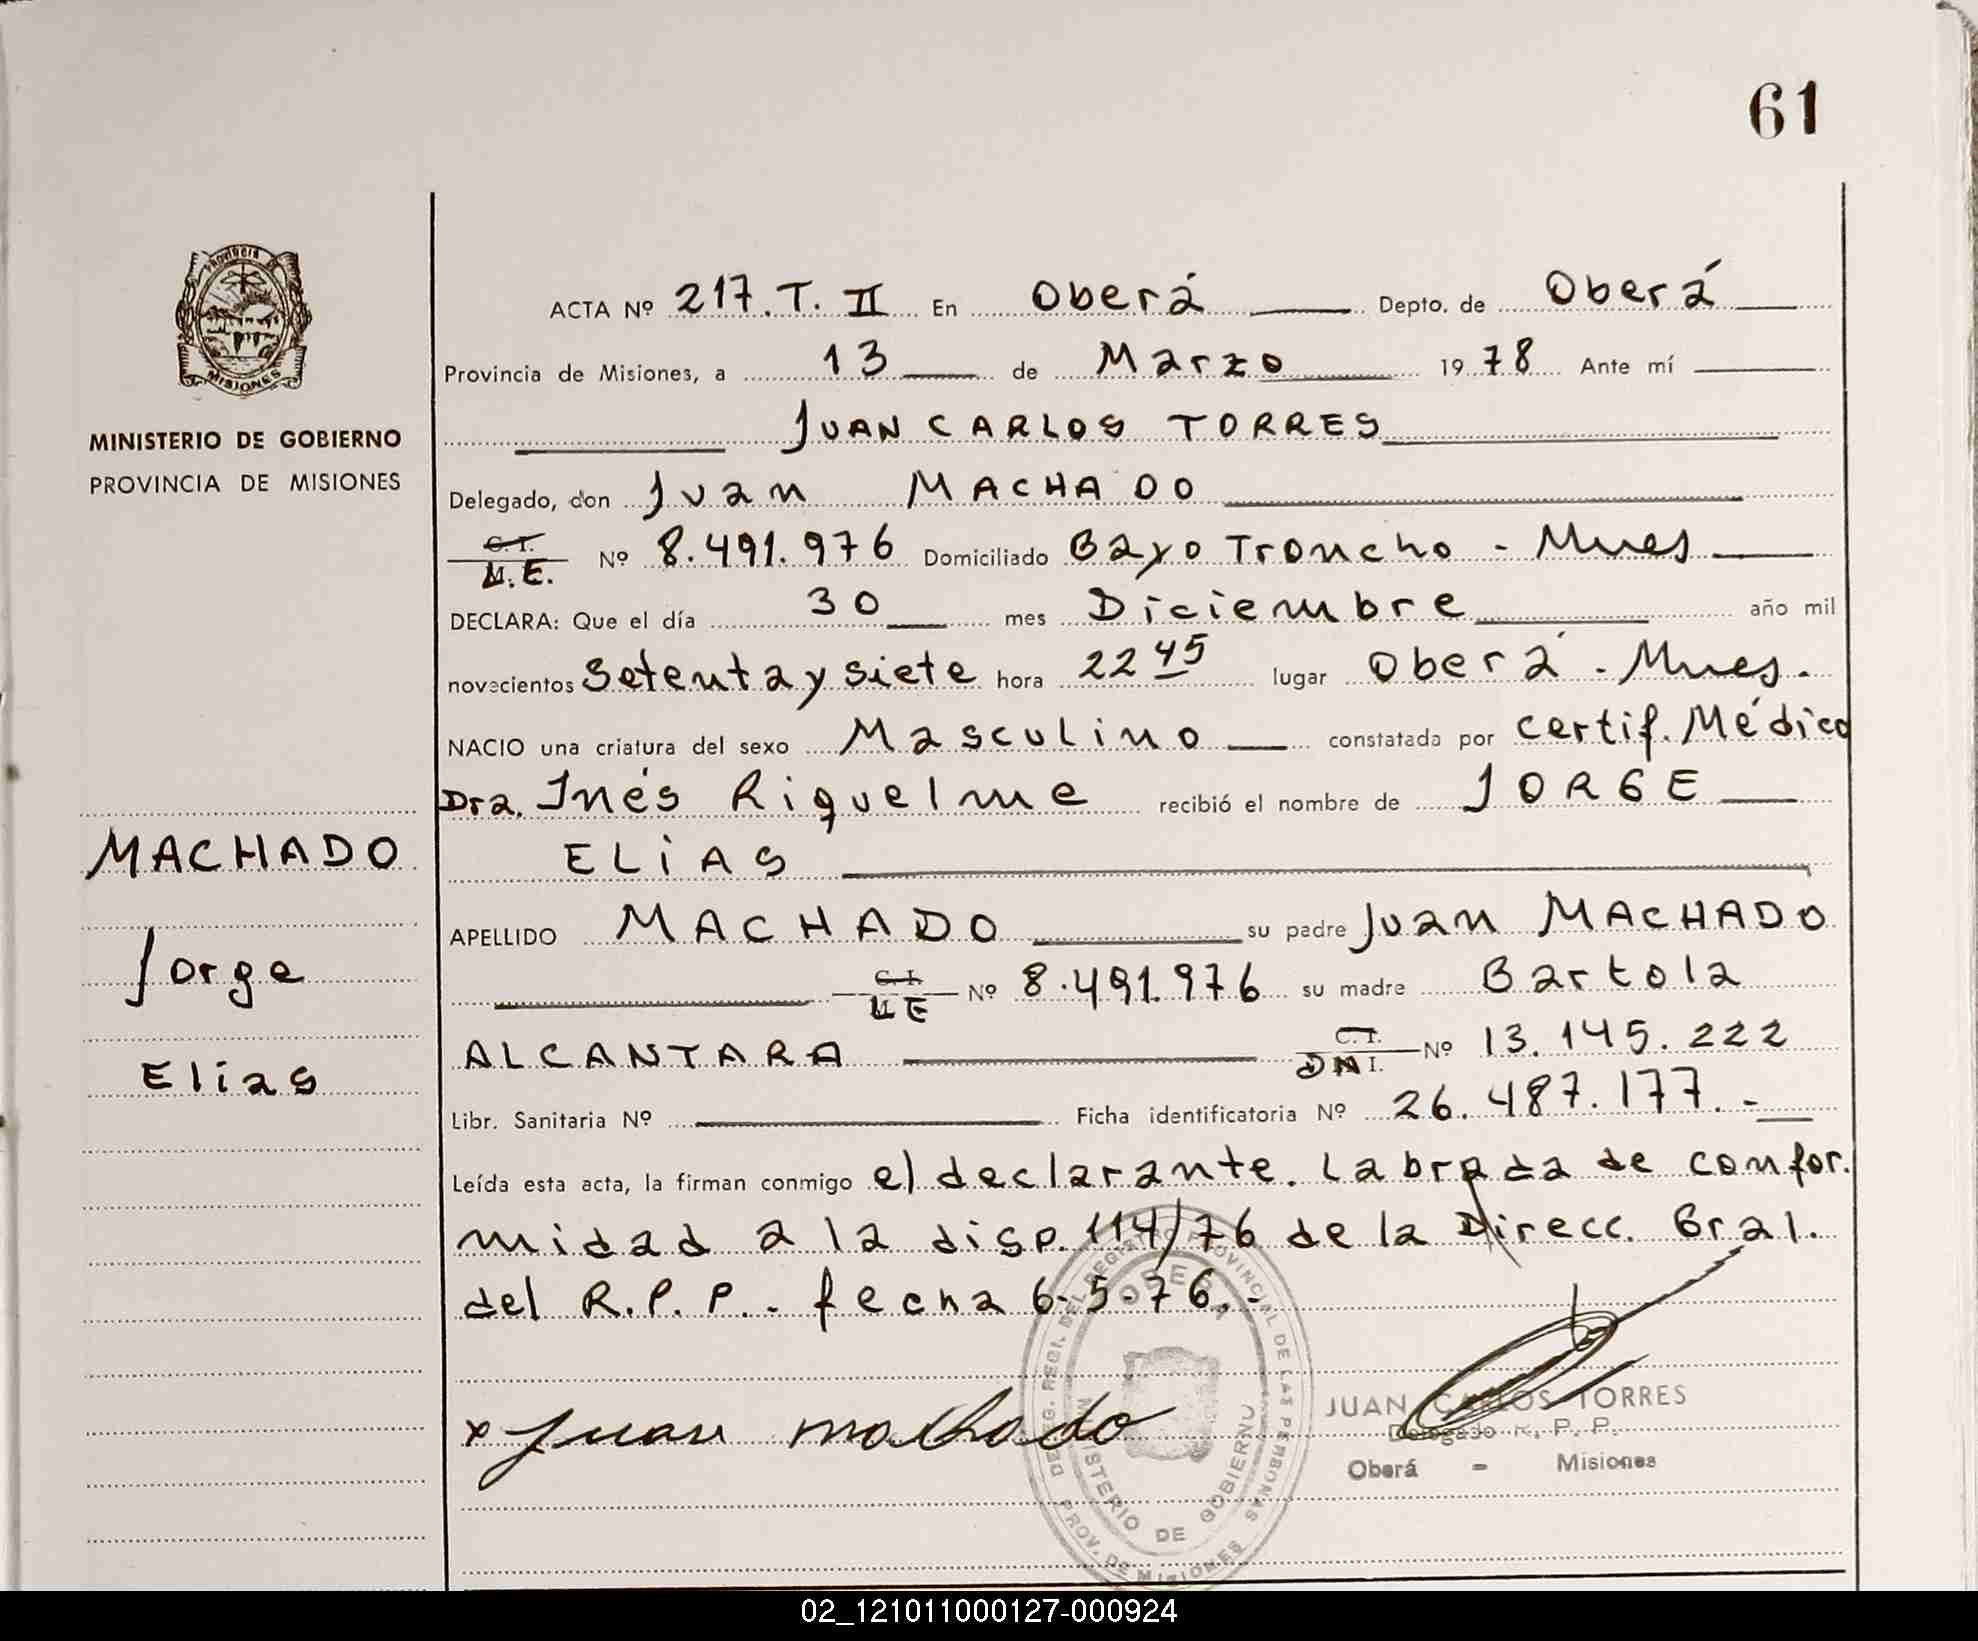 61
PROVINCIA DE
MISIONES
MINISTERIO DE GOBIERNO
PROVINCIA DE MISIONES
MACHADO
Jorge
Elias
ACTA Nº 217. T. II En Oberá Depto. de Oberá
Provincia de Misiones, a 13 de Marzo 19 78 Ante mí
JUAN CARLOS TORRES
Delegado, don Juan MACHADO
C.I.
M.E. Nº 8.491.976 Domiciliado Bayo Troncho - Mnes
DECLARA: Que el día 30 mes Diciembre año mil
novecientos Setenta y siete hora 22 45 lugar Oberá - Mnes.
NACIO una criatura del sexo Masculino constatada por certif. Médico
Dra. Inés Riquelme recibió el nombre de JORGE
ELiAS
APELLIDO MACHADO su padre Juan MACHADO
C.I.
M E Nº 8.491.976 su madre Bartola
ALCANTARA C.I.
DNI. Nº 13.145.222
Libr. Sanitaria Nº Ficha identificatoria Nº 26.487.177.-
Leída esta acta, la firman conmigo el declarante. Labrada de confor.
midad a la disp. 114/76 de la Direcc. Gral.
del R.P.P.- fecha 6-5-76.-
x Juan machado
DELEG. REGI. DEL REGISTRO PROVINCIAL DE LAS PERSONAS
MINISTERIO DE GOBIERNO
PROV. DE MISIONES
JUAN CARLOS TORRES
Delegado R. P. P.
Oberá - Misiones
02_121011000127-000924